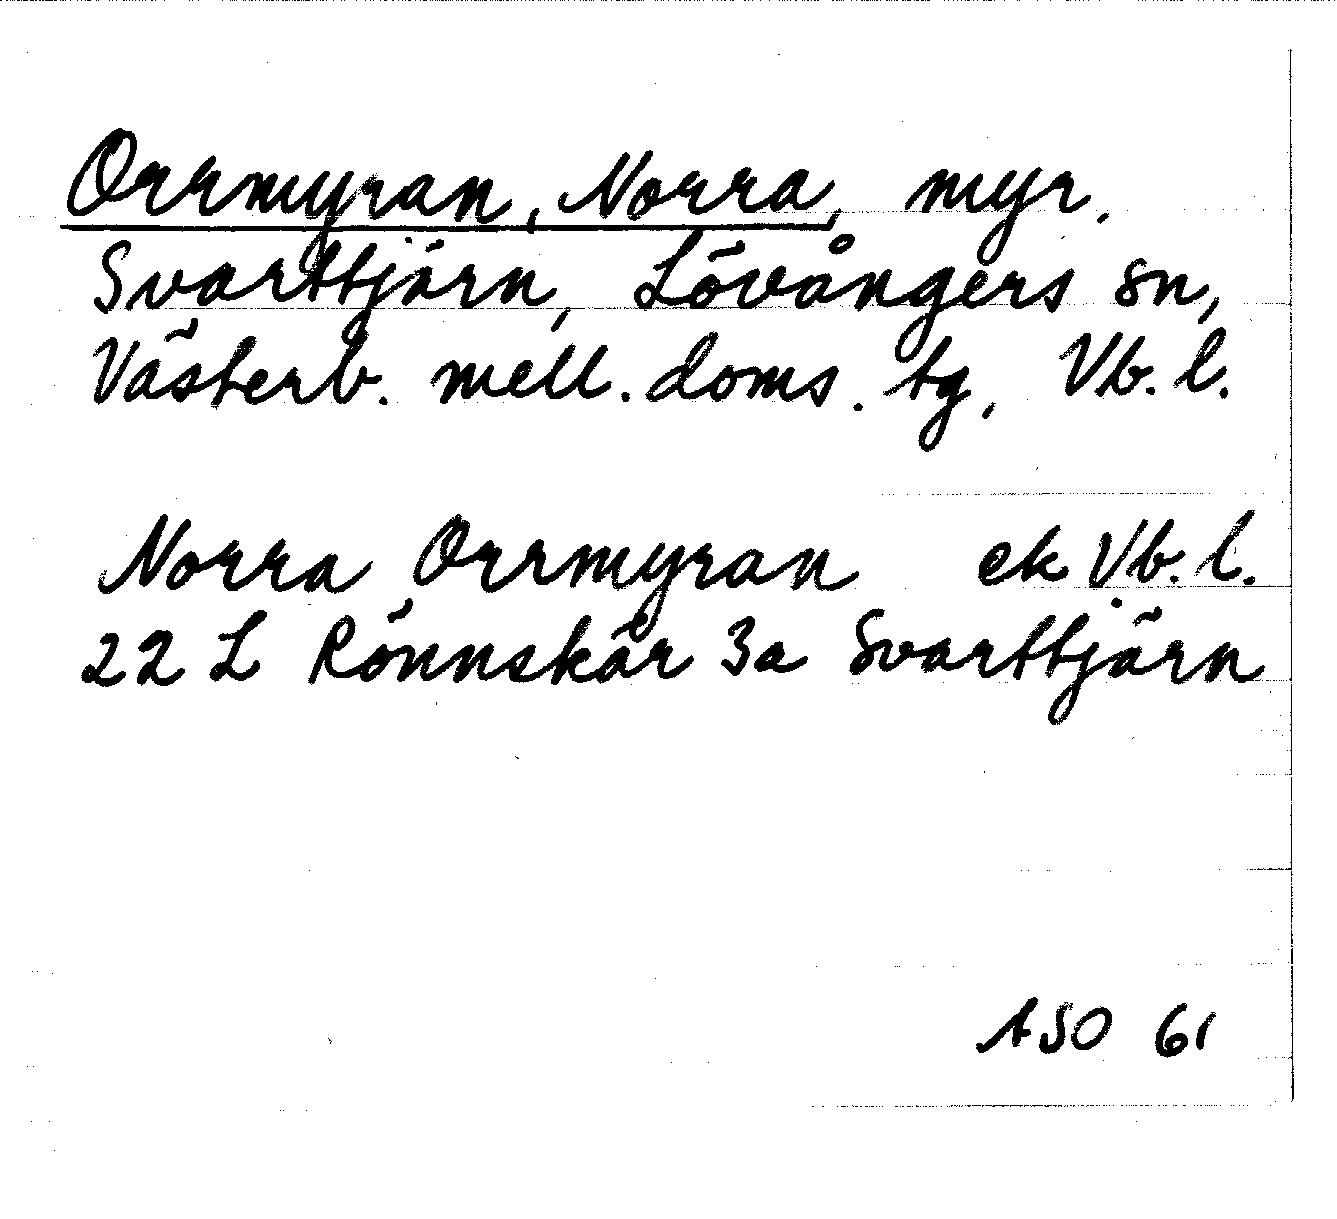 Orrmyran, Norra, myr.
Svarttjärn, Lövångers sn,
Västerb. mell. doms. tg, Vb. l.
Norra Orrmyran ek Vb. l.
22 L Rönnskär 3a Svarttjärn
ASO 61